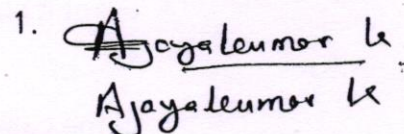 1. Ajayakumar K
Ajayakumar K